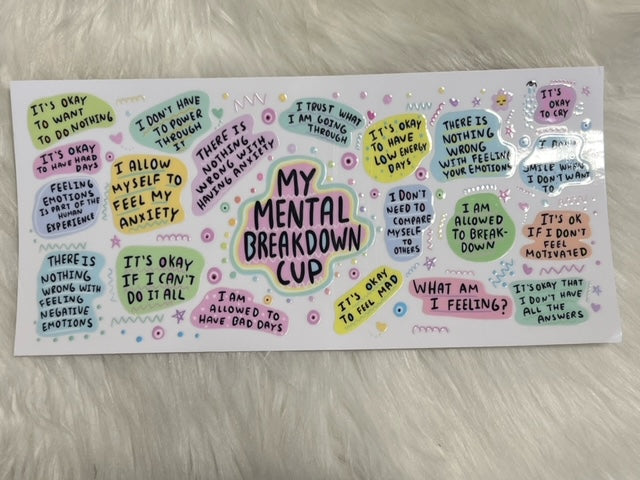 IT'S OKAY
TO WANT
TO DO NOTHING
I DON'T HAVE
TO POWER
THROUGH
IT
THERE IS
NOTHING
WRONG WITH
HAVING ANXIETY
I TRUST WHAT
I AM GOING
THROUGH
IT'S OKAY
TO HAVE
LOW ENERGY
DAYS
THERE IS
NOTHING
WRONG
WITH FEELING
YOUR EMOTIONS
IT'S
OKAY
TO CRY
IT'S OKAY
TO HAVE HARD
DAYS
I ALLOW
MYSELF TO
FEEL MY
ANXIETY
FEELING
EMOTIONS
IS PART OF THE
HUMAN
EXPERIENCE
MY
MENTAL
BREAKDOWN
CUP
I DON'T
NEED TO
COMPARE
MYSELF
TO
OTHERS
I AM
ALLOWED
TO BREAK-
DOWN
I
SMILE WHEN
I DON'T WANT
TO
IT'S OK
IF I DON'T
FEEL
MOTIVATED
THERE IS
NOTHING
WRONG WITH
FEELING
NEGATIVE
EMOTIONS
IT'S OKAY
IF I CAN'T
DO IT ALL
I AM
ALLOWED TO
HAVE BAD DAYS
IT'S OKAY
TO FEEL MAD
WHAT AM
I FEELING?
IT'S OKAY THAT
I DON'T HAVE
ALL THE
ANSWERS